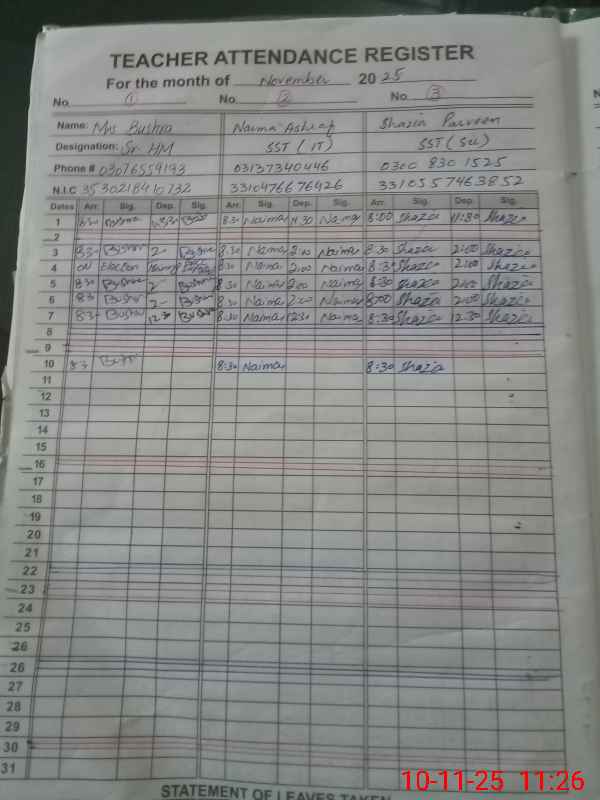 TEACHER ATTENDANCE REGISTER
For the month of November 2025
No. ① No. ② No. ③
Name: Mrs Bushra Naima Ashraf Shazia Parveen
Designation: Sr. HM SST (IT) SST (Sci)
Phone # 03076559193 03137340446 0300 830 1525
N.I.C 3310476676426 3310557463852
Dates Arr. Sig. Dep. Sig. Arr. Sig. Dep. Sig. Arr. Sig. Dep. Sig.
1 8:30 Bushra 8:30 Naima 11:30 Naima 8:00 Shazia 11:30 Shazia
2
3 8:30 Bushra 2 Bushra 8:30 Naima 2:00 Naima 8:30 Shazia 2:00 Shazia
4 ON Election 8:30 Naima 2:00 Naima 8:30 Shazia 2:00 Shazia
5 8:30 Bushra 2 Bushra 8:30 Naima 2:00 Naima 8:30 Shazia 2:00 Shazia
6 8:30 Bushra 2 Bushra 8:30 Naima 2:00 Naima 8:00 Shazia 2:00 Shazia
7 8:30 Bushra 12:30 Bushra 8:30 Naima 12:30 Naima 8:30 Shazia 12:30 Shazia
8
9
10 8:3 Bushra 8:30 Naima 8:30 Shazia
11
12
13
14
15
16
17
18
19
20
21
22
23
24
25
26
26
27
28
29
30
31
STATEMENT OF LEAVES TAKEN
10-11-25 11:26